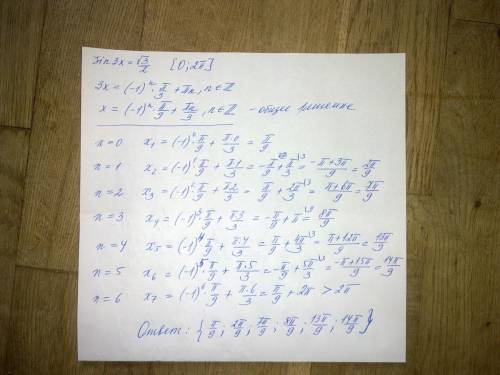 sin 3x = √3/2   [0; 2π]
3x = (-1)ⁿ · π/3 + πn, n∈ℤ
x = (-1)ⁿ · π/9 + πn/3, n∈ℤ - общее решение
n=0   x₁ = (-1)⁰ · π/9 + π·0/3 = π/9
n=1   x₂ = (-1)¹ · π/9 + π·1/3 = -π/9 + π/3 = (-π+3π)/9 = 2π/9
n=2   x₃ = (-1)² · π/9 + π·2/3 = π/9 + 2π/3 = (π+6π)/9 = 7π/9
n=3   x₄ = (-1)³ · π/9 + π·3/3 = -π/9 + π = 8π/9
n=4   x₅ = (-1)⁴ · π/9 + π·4/3 = π/9 + 4π/3 = (π+12π)/9 = 13π/9
n=5   x₆ = (-1)⁵ · π/9 + π·5/3 = -π/9 + 5π/3 = (-π+15π)/9 = 14π/9
n=6   x₇ = (-1)⁶ · π/9 + π·6/3 = π/9 + 2π > 2π
Ответ: {π/9; 2π/9; 7π/9; 8π/9; 13π/9; 14π/9}